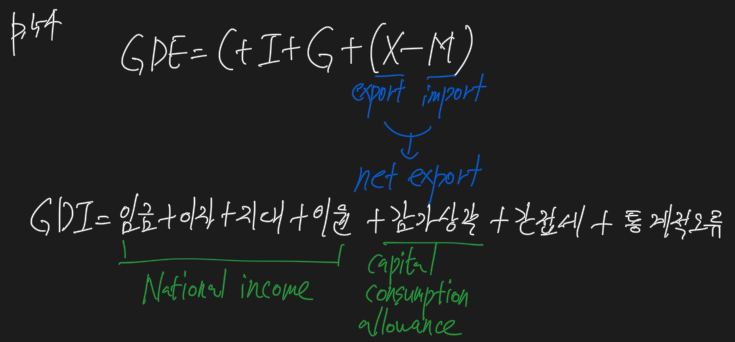 p.54
GDE = C+I+G+(X-M)
export import
net export
GDI = 임금+이자+지대+이윤 + 감가상각 + 간접세 + 통계적오류
National income
capital
consumption
allowance